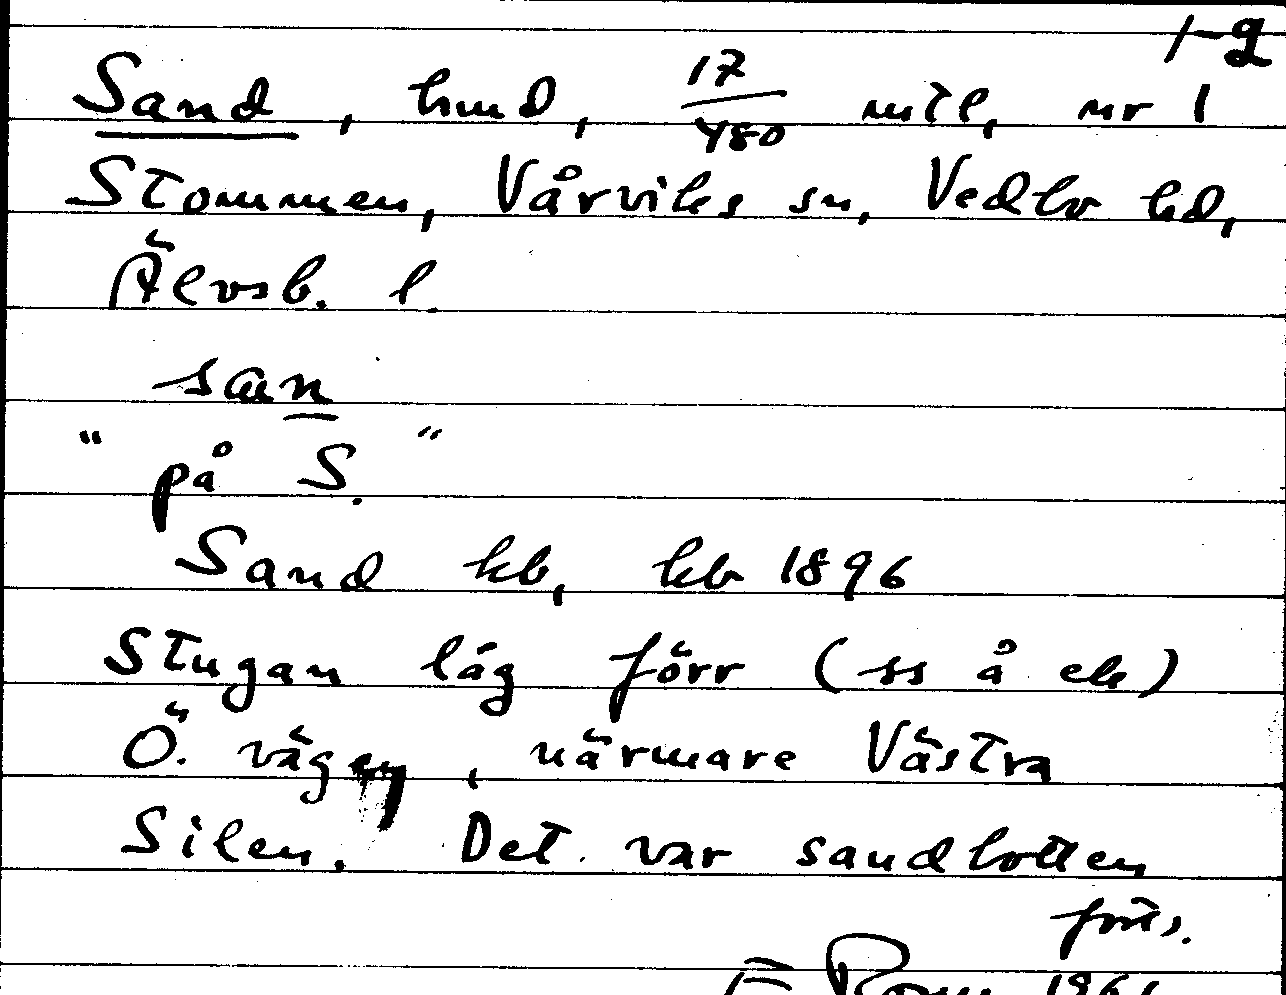 1-2
Sand, hmd, 17/480 mtl, nr 1
Stommen, Vårviks sn, Vedbo hd,
Älvsb. l.
san
" på S. "
Sand kb, kb 1896
Stugan låg förr (ss å ek)
Ö. vägen, närmare Västra
Silen. Det var sandbotten
forts.
1961